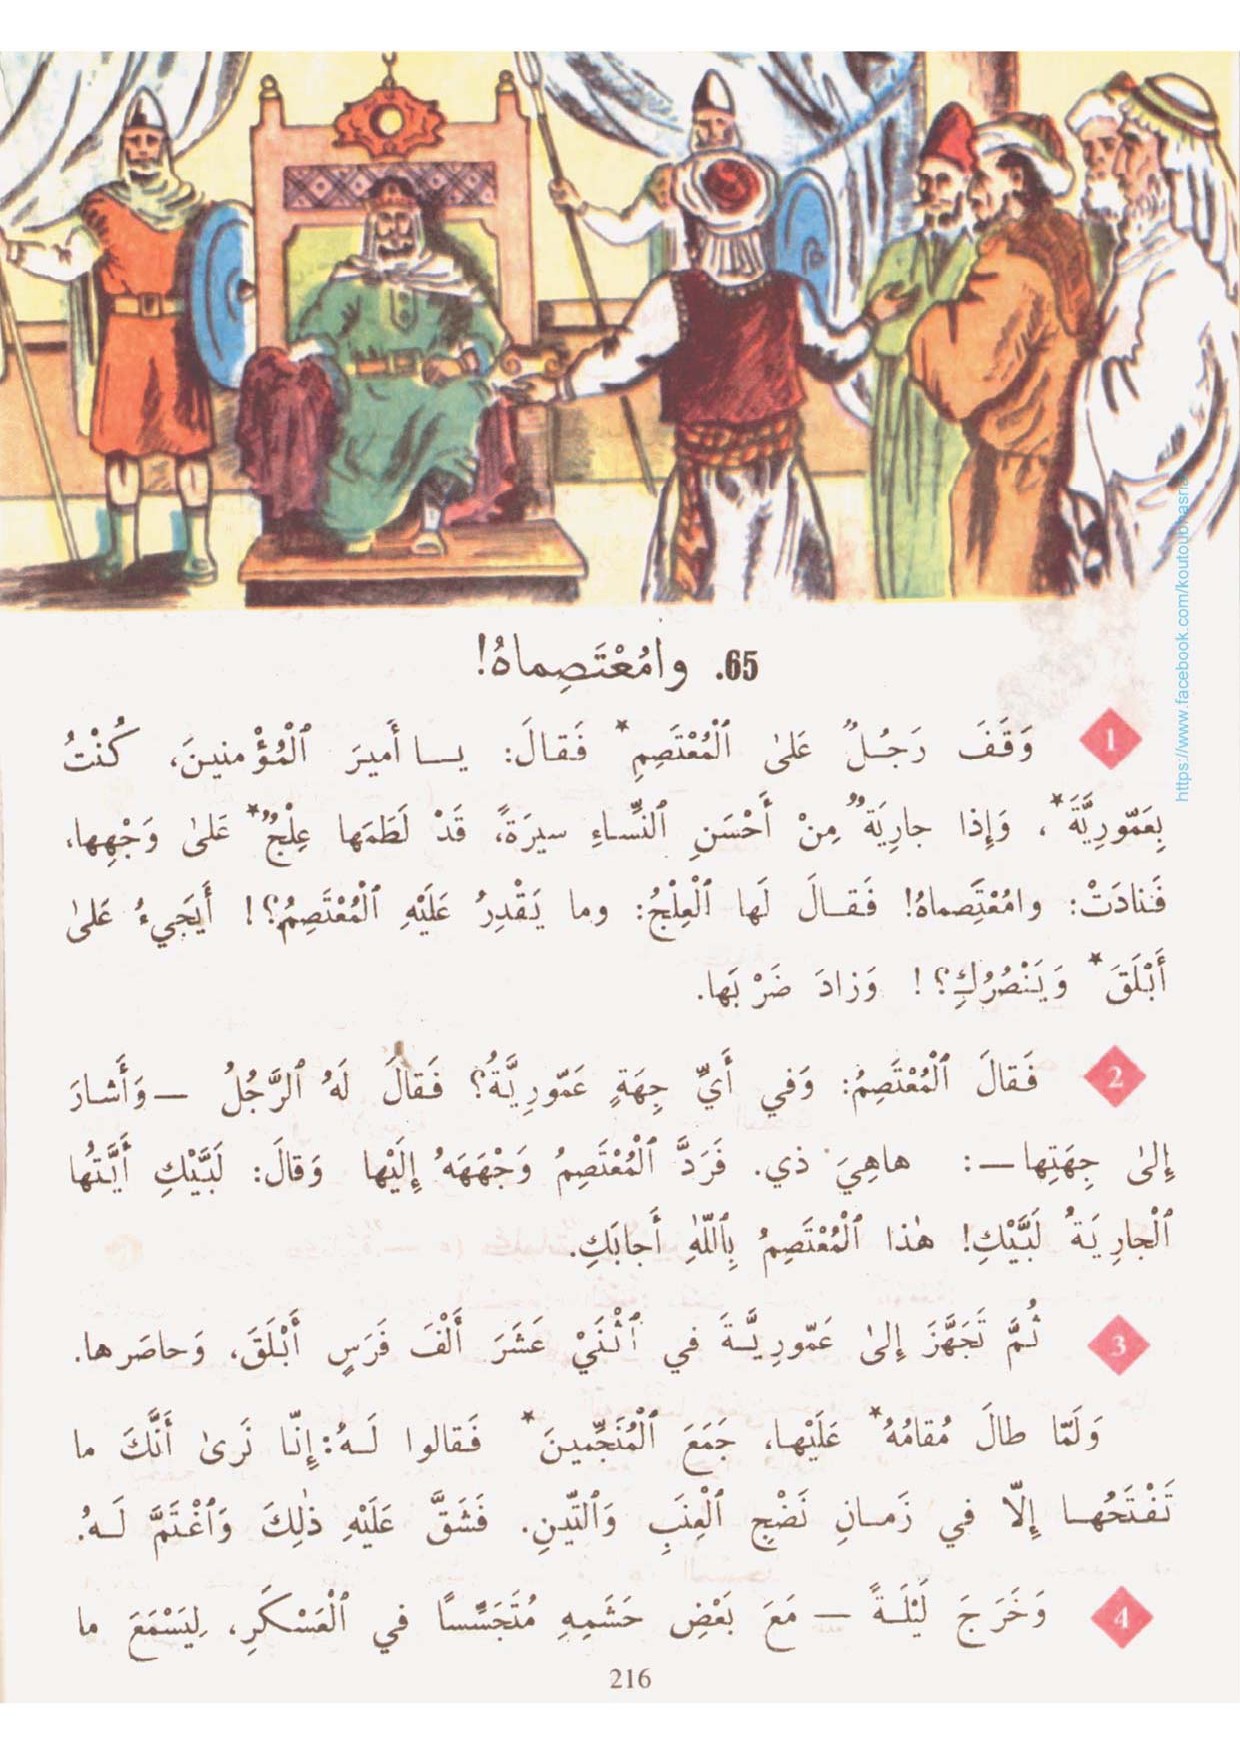 65. وامُعْتَصِماهُ!
1 وَقَفَ رَجُلٌ عَلىٰ ٱلْمُعْتَصِمِ* فَقالَ: يـا أَميرَ ٱلْمُؤْمنينَ، كُنْتُ
بِعَمّورِيَّةَ*، وَإِذا جارِيَةٌ مِنْ أَحْسَنِ ٱلنِّساءِ سيرَةً، قَدْ لَطَمَها عِلْجٌ* عَلىٰ وَجْهِها،
فَنادَتْ: وامُعْتَصِماهُ! فَقـالَ لَها ٱلْعِلْجُ: وما يَقْدِرُ عَلَيْهِ ٱلْمُعْتَصِمُ؟! أَيَجيءُ عَلىٰ
أَبْلَقَ* وَيَنْصُرُكِ؟! وَزادَ ضَرْبَها.
2 فَـقالَ ٱلْمُعْتَصِمُ: وَفي أَيِّ جِهَةٍ عَمّورِيَّةُ؟ فَقالَ لَهُ ٱلرَّجُلُ —وَأَشارَ
إِلىٰ جِهَتِها—: هاهِيَ ذي. فَرَدَّ ٱلْمُعْتَصِمُ وَجْهَهُ إِلَيْها وَقالَ: لَبَّيْكِ أَيَّتُها
ٱلْجارِيَةُ لَبَّيْكِ! هٰذا ٱلْمُعْتَصِمُ بِٱللّٰهِ أَجابَكِ.
3 ثُمَّ تَجَهَّزَ إِلىٰ عَمّورِيَّـةَ في ٱثْنَيْ عَشَرَ أَلْفَ فَرَسٍ أَبْلَقَ، وَحاصَرها.
وَلَمّا طالَ مُقامُهُ* عَلَيْها، جَمَعَ ٱلْمُنَجِّمينَ* فَقالوا لَـهُ: إِنّا نَرىٰ أَنَّكَ ما
تَفْتَحُهـا إِلّا في زَمـانِ نَضْجِ ٱلْعِنَبِ وَٱلتّينِ. فَشَقَّ عَلَيْهِ ذٰلِكَ وَٱغْتَمَّ لَـهُ.
4 وَخَرَجَ لَيْلَـةً — مَعَ بَعْضِ حَشَمِهِ مُتَجَسِّسًا في ٱلْعَسْكَرِ، لِيَسْمَعَ ما
216